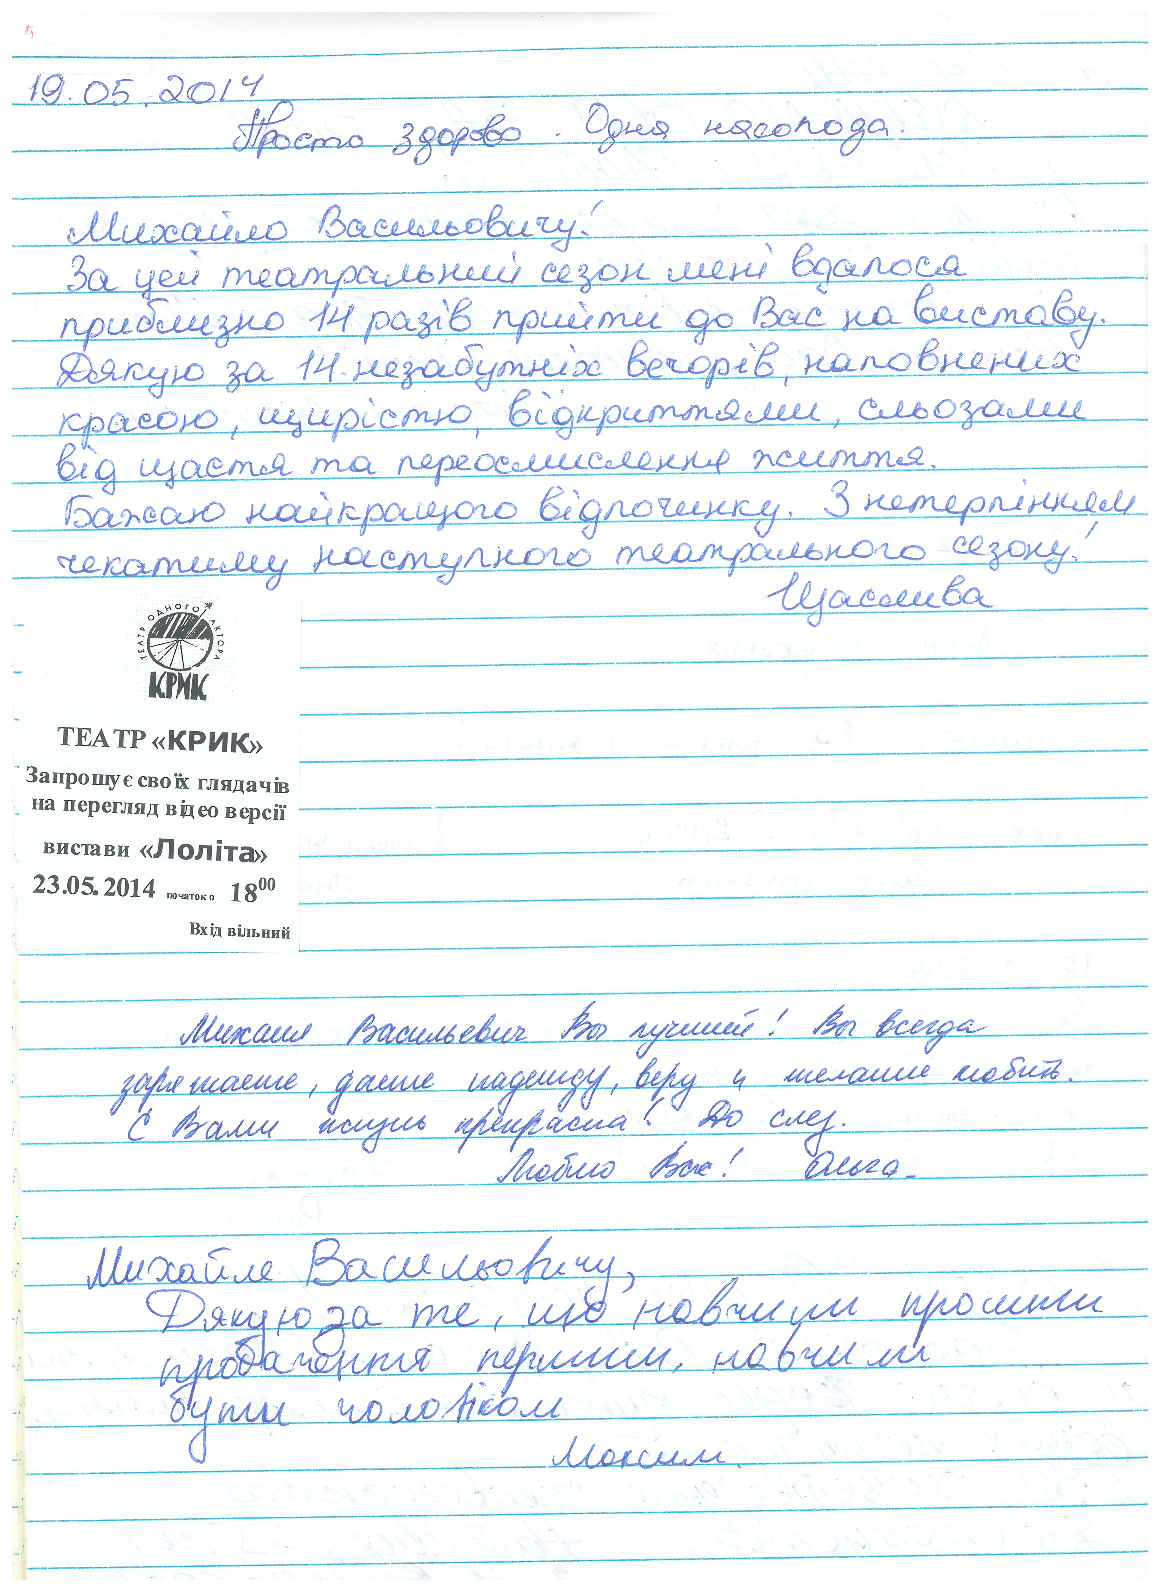 19.05.2014
Просто здорово. Одна насолода.
Михайло Васильовичу!
За цей театральний сезон мені вдалося
приблизно 14 разів прийти до Вас на виставу.
Дякую за 14 незабутніх вечорів, наповнених
красою, щирістю, відкриттями, сльозами
від щастя та переосмислення життя.
Бажаю найкращого відпочинку. З нетерпінням
чекатиму наступного театрального сезону!
Щаслива
ТЕАТР ОДНОГО АКТОРА
КРИК
ТЕАТР «КРИК»
Запрошує своїх глядачів
на перегляд відео версії
вистави «Лоліта»
23.05.2014 початок о 18⁰⁰
Вхід вільний
Михаил Васильевич Вы лучший! Вы всегда
заряжаете, даете надежду, веру и желание любить.
С Вами жизнь прекрасна! До след.
Люблю Вас! Ольга.
Михайле Васильовичу,
Дякую за те, що навчили просити
пробачення першим, навчили
бути чоловіком
Максим.